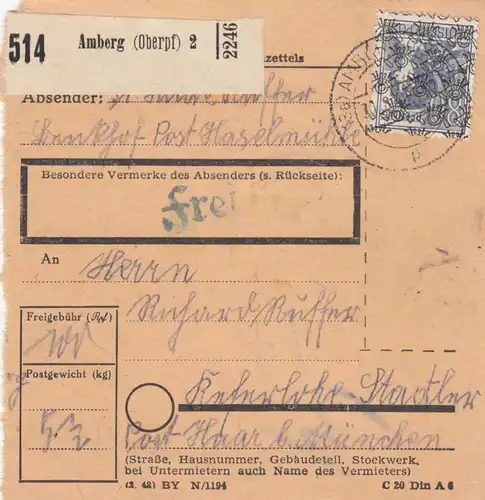 514 Amberg (Oberpf) 2 2246
zettels
Absender:
Lenkhof Post Haselmühle
AMBERG
Besondere Vermerke des Absenders (s. Rückseite):
frei
An
Herrn
Richard Ruffer
Freigebühr (Rpf)
100
Postgewicht (kg)
5.3
Keferlohe-Stadler
Post Haar b. München
(Straße, Hausnummer, Gebäudeteil, Stockwerk,
bei Untermietern auch Name des Vermieters)
(2. 48) BY N/1194 C 20 Din A 6